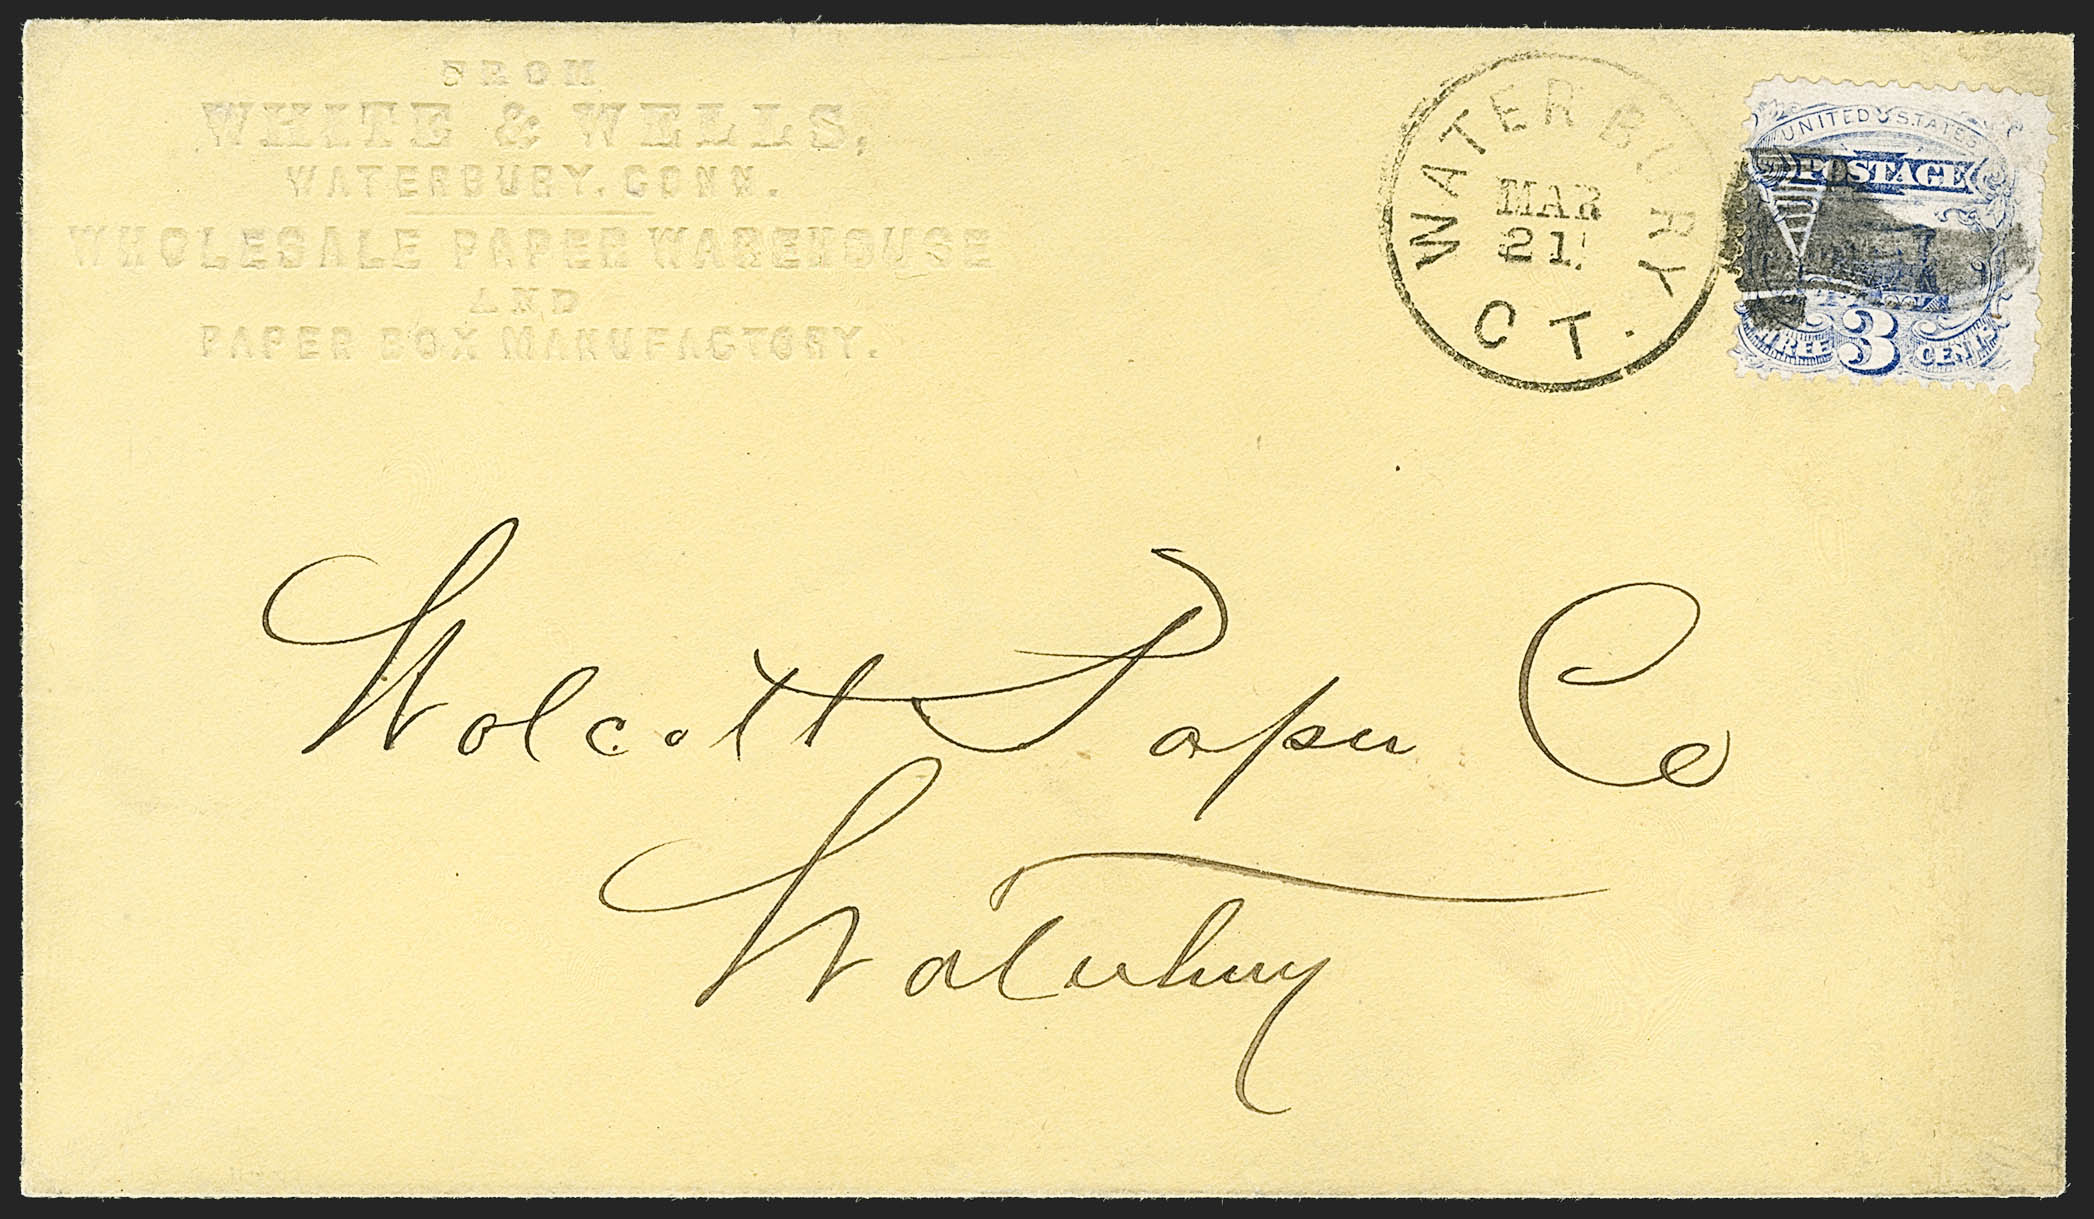 FROM
WHITE & WELLS,
WATERBURY, CONN.
WHOLESALE PAPER WAREHOUSE
AND
PAPER BOX MANUFACTORY.
WATERBURY
MAR
21
CT.
UNITED STATES
POSTAGE
THREE 3 CENTS
Wolcott Paper Co
Waterbury